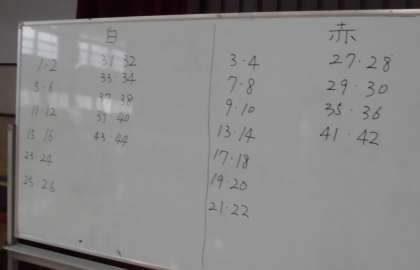 白
1・2
5・6
11・12
15・16
23・24
25・26
31 32
33・34
37・38
39・40
43・44
赤
3・4
7・8
9・10
13・14
17・18
19・20
21・22
27・28
29・30
35・36
41・42